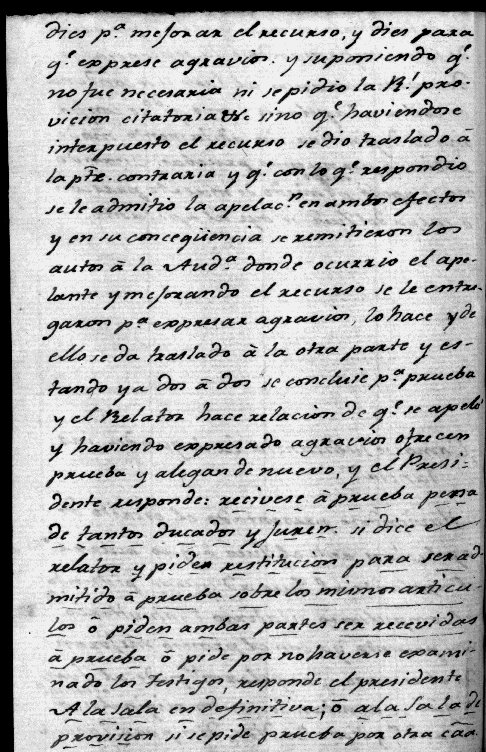 dies p.ª mejorar el recurso, y dies para
q.ᵉ exprese agravios. y suponiendo q.ᵉ
no fue necesaria ni se pidio la R.ˡ pro-
vicion citatoria &c sino q.ᵉ haviendose
interpuesto el recurso se dio traslado â
la pᵗᵉ. contraria y q.ᵉ con lo q.ᵉ respondio
se le admitio la apelac.ⁿ en ambos efectos
y en su conceqüencia se remitieron los
autos â la Aud.ª donde ocurrio el ape-
lante y mejorando el recurso se le entre-
garon p.ª expresar agravios, lo hace y de
ello se da traslado â la otra parte y es-
tando ya dos â dos se concluie p.ª prueba
y el Relator hace relacion de q.ᵉ se apeló
y haviendo expresado agravios ofrecen
prueba y alegan de nuevo, y el Presi-
dente responde: recivese â prueba pena
de tantos ducados y juren. si dice el
relator y piden restitucion para ser ad-
mitido â prueba sobre los mismos articu-
los ô piden ambas partes ser recevidas
â prueba ô pide por no haverse exami-
nado los testigos, responde el presidente
A la sala en definitiva; ô a la sala de
provision si se pide prueba por otra caa.